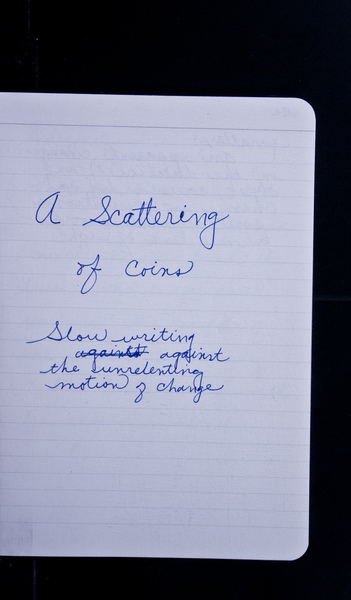 A Scattering
of Coins
Slow writing
against against
the unrelenting
motion of change